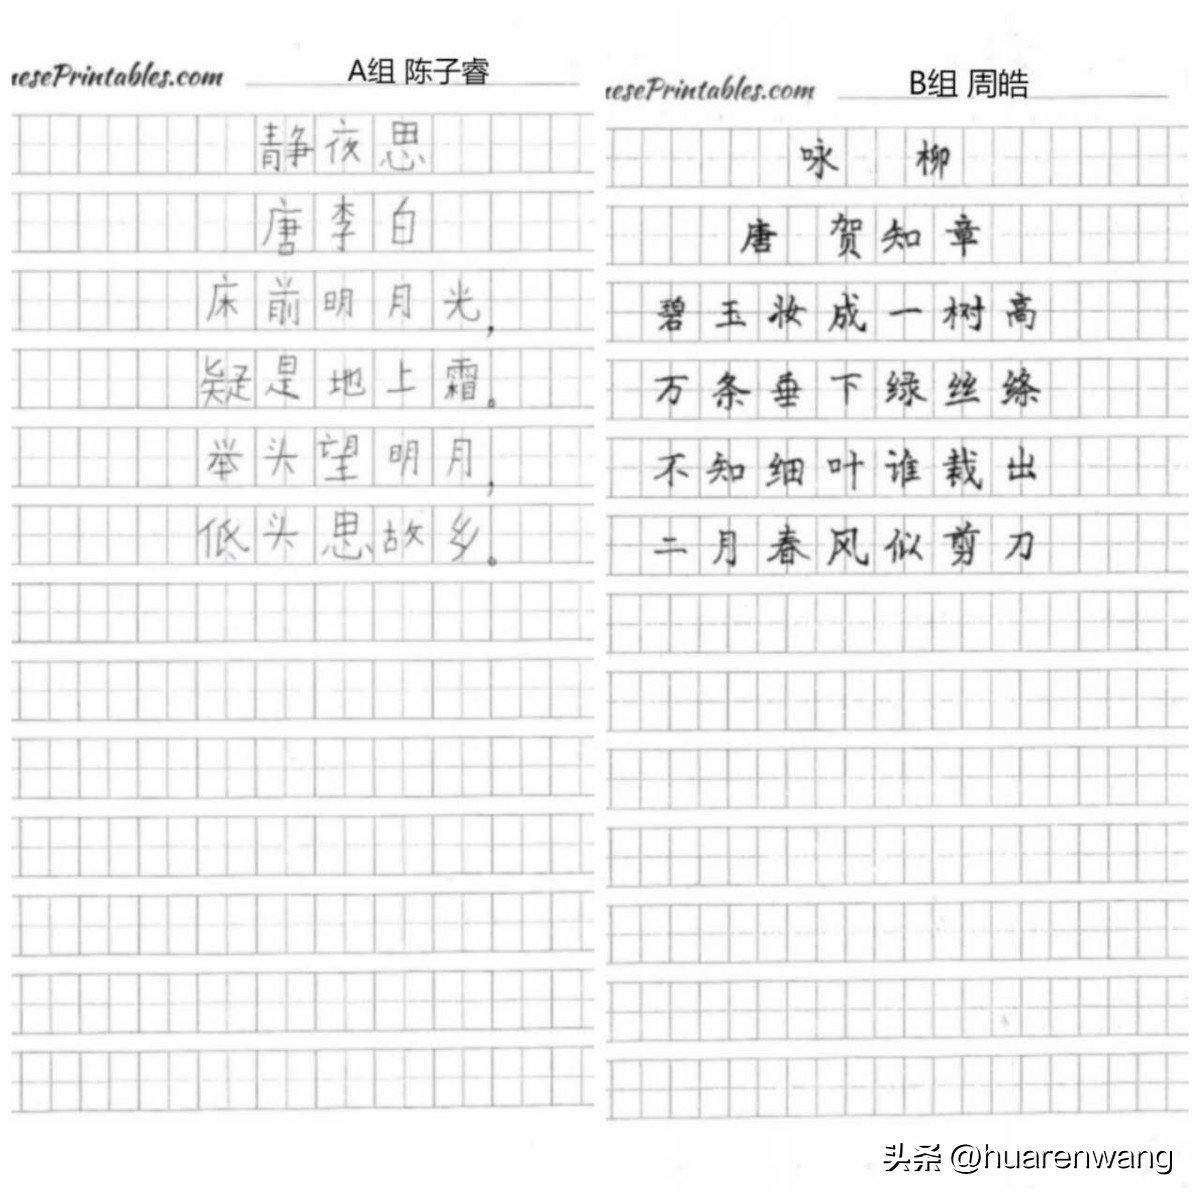 nesePrintables.com A组 陈子睿
静夜思
唐 李白
床前明月光，
疑是地上霜。
举头望明月，
低头思故乡。
nesePrintables.com B组 周皓
咏 柳
唐 贺知章
碧玉妆成一树高
万条垂下绿丝绦
不知细叶谁裁出
二月春风似剪刀
头条 @huarenwang